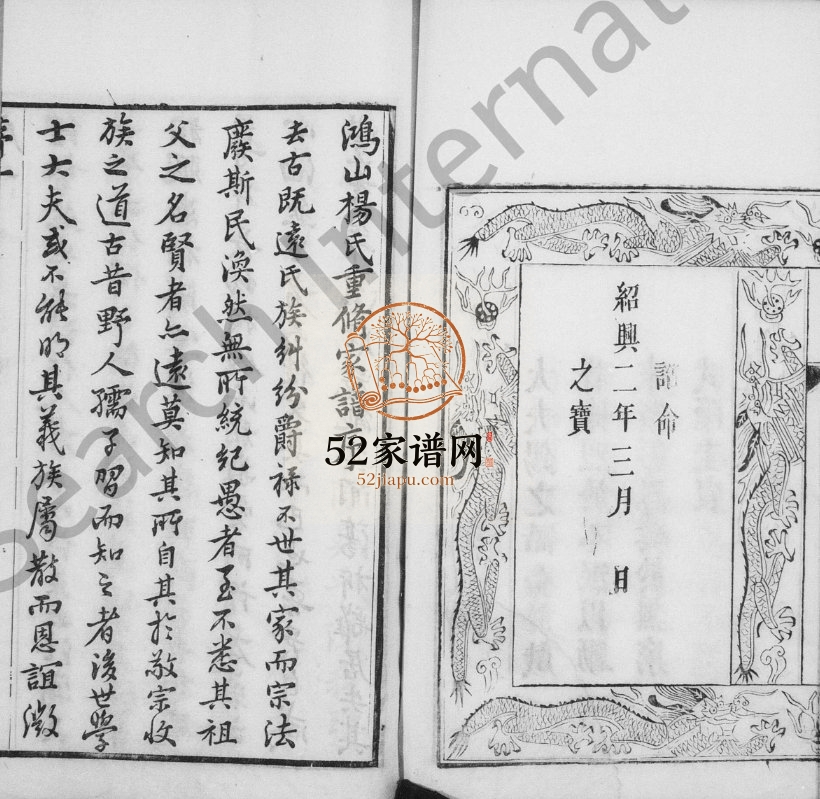 誥命
紹興二年三月　日
之寶
鴻山楊氏重修家譜序
去古既遠氏族糾紛爵祿不世其家而宗法
廢斯民渙然無所統紀愚者至不悉其祖
父之名賢者亦遠莫知其所自其於敬宗收
族之道古昔野人孺子習而知之者後世學
士大夫或不能明其義族屬散而恩誼微
序一
52家谱网
52jiapu.com
Search Internat